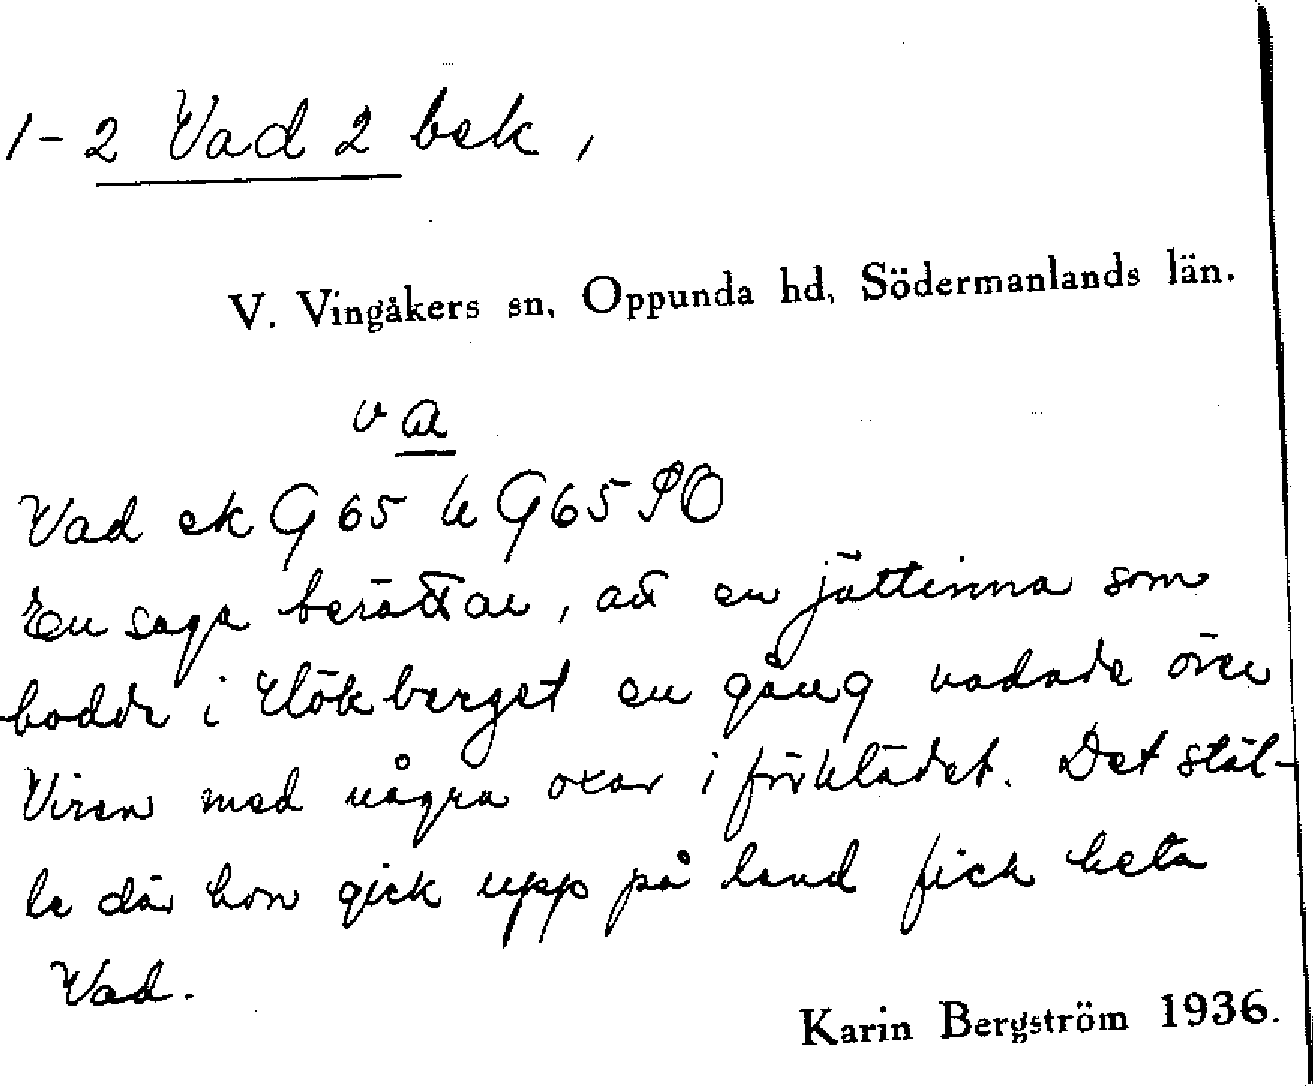 1-2 Vad 2 bek,
V. Vingåkers sn, Oppunda hd, Södermanlands län.
va
Vad ek G 65 h G65 SO
En saga berättar, att en jättinna som
bodde i Hökberget en gång vadade över
Viren med några oxar i förklädet. Det stäl-
le där hon gick upp på land fick heta
Vad.
Karin Bergström 1936.